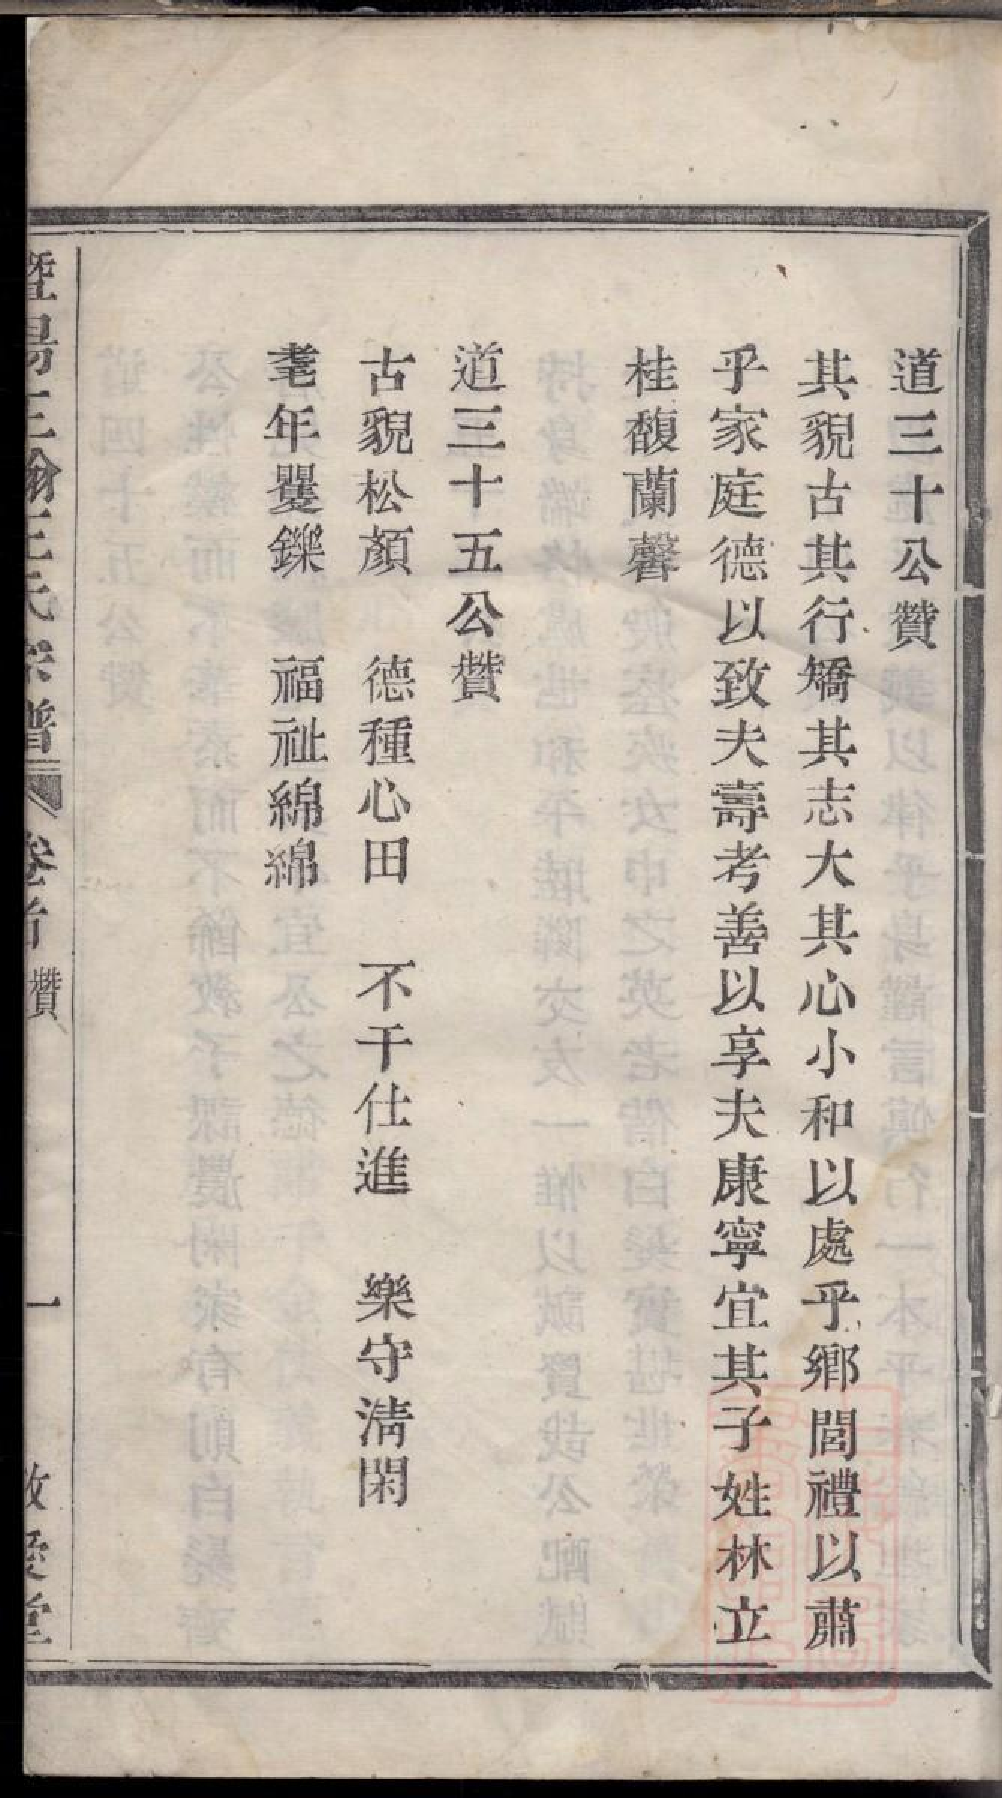 道三十公贊
其貌古其行矯其志大其心小和以處乎鄉閭禮以肅
乎家庭德以致夫壽考善以享夫康寧宜其子姓林立
桂馥蘭馨
道三十五公贊
古貌松顏　德種心田　不干仕進　樂守清閑
耄年矍鑠　福祉綿綿
暨陽王氏宗譜　卷首　贊　一　敬愛堂